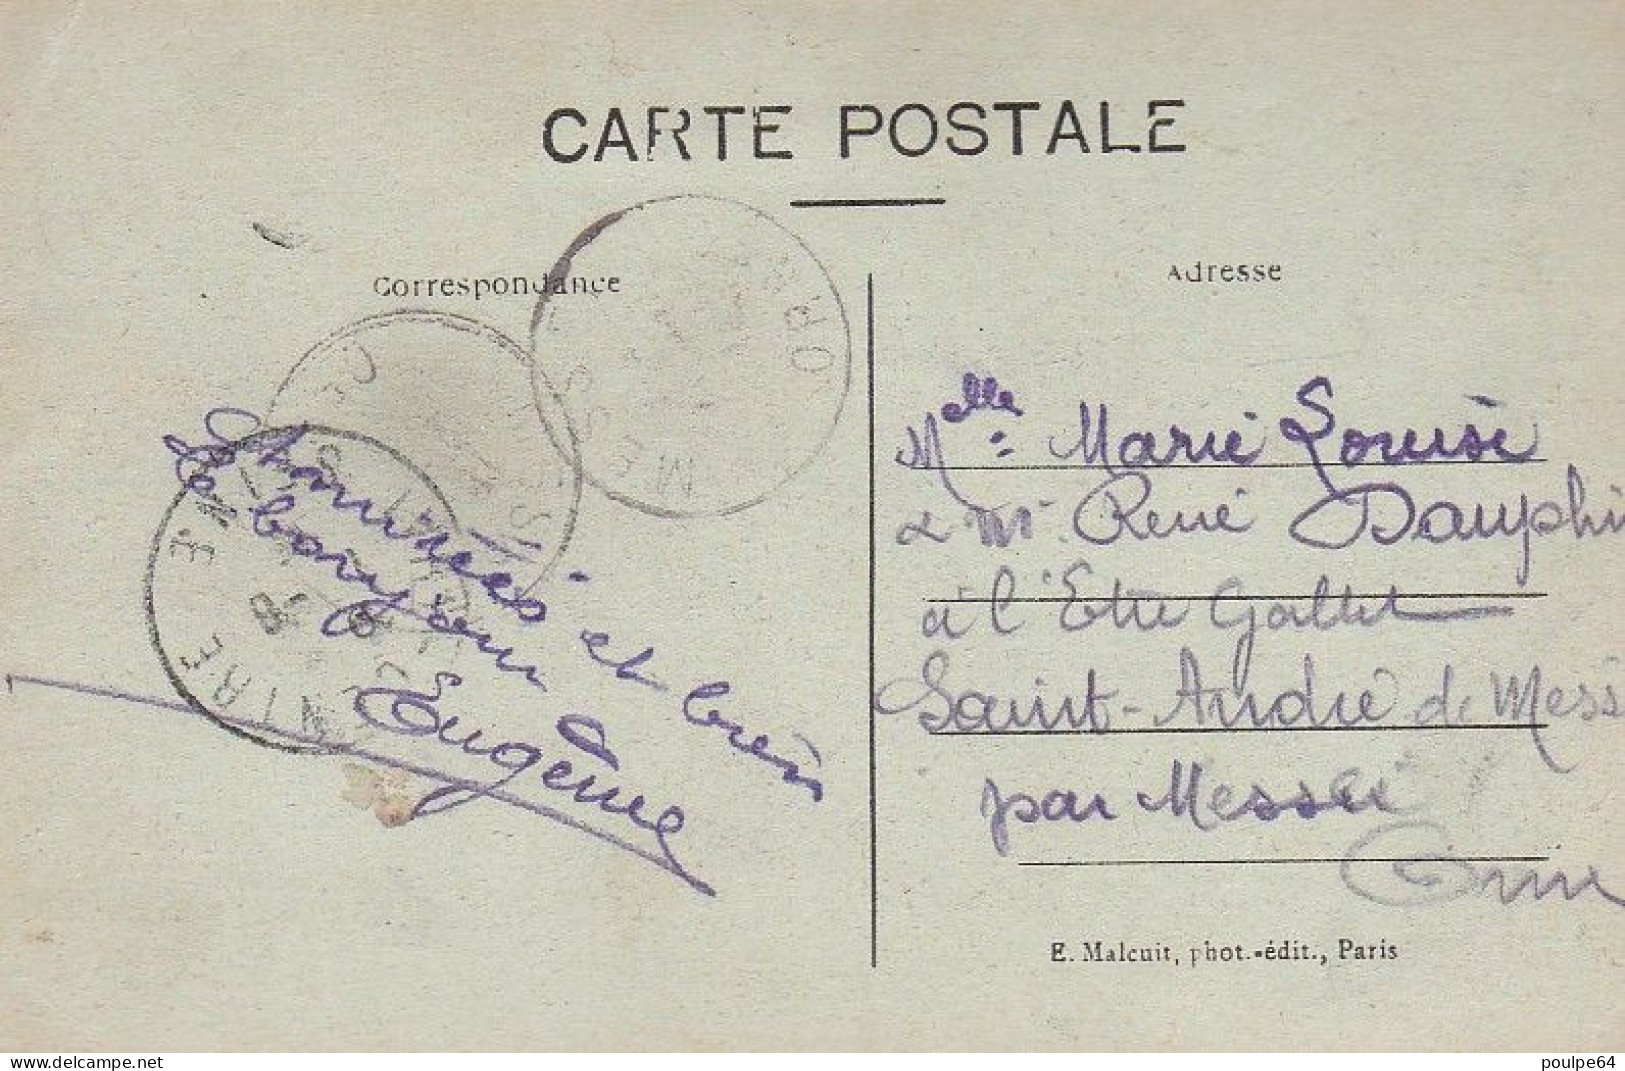 CARTE POSTALE
Correspondance
Adresse
Amitiés et bien
le bonjour
Eugène
Melle Marie Louise
& Mr René Dauphin
à l'Etre Gallet
Saint-André de Mess
par Messei
Orne
E. Malcuit, phot.-édit., Paris
www.delcampe.net
poulpe64